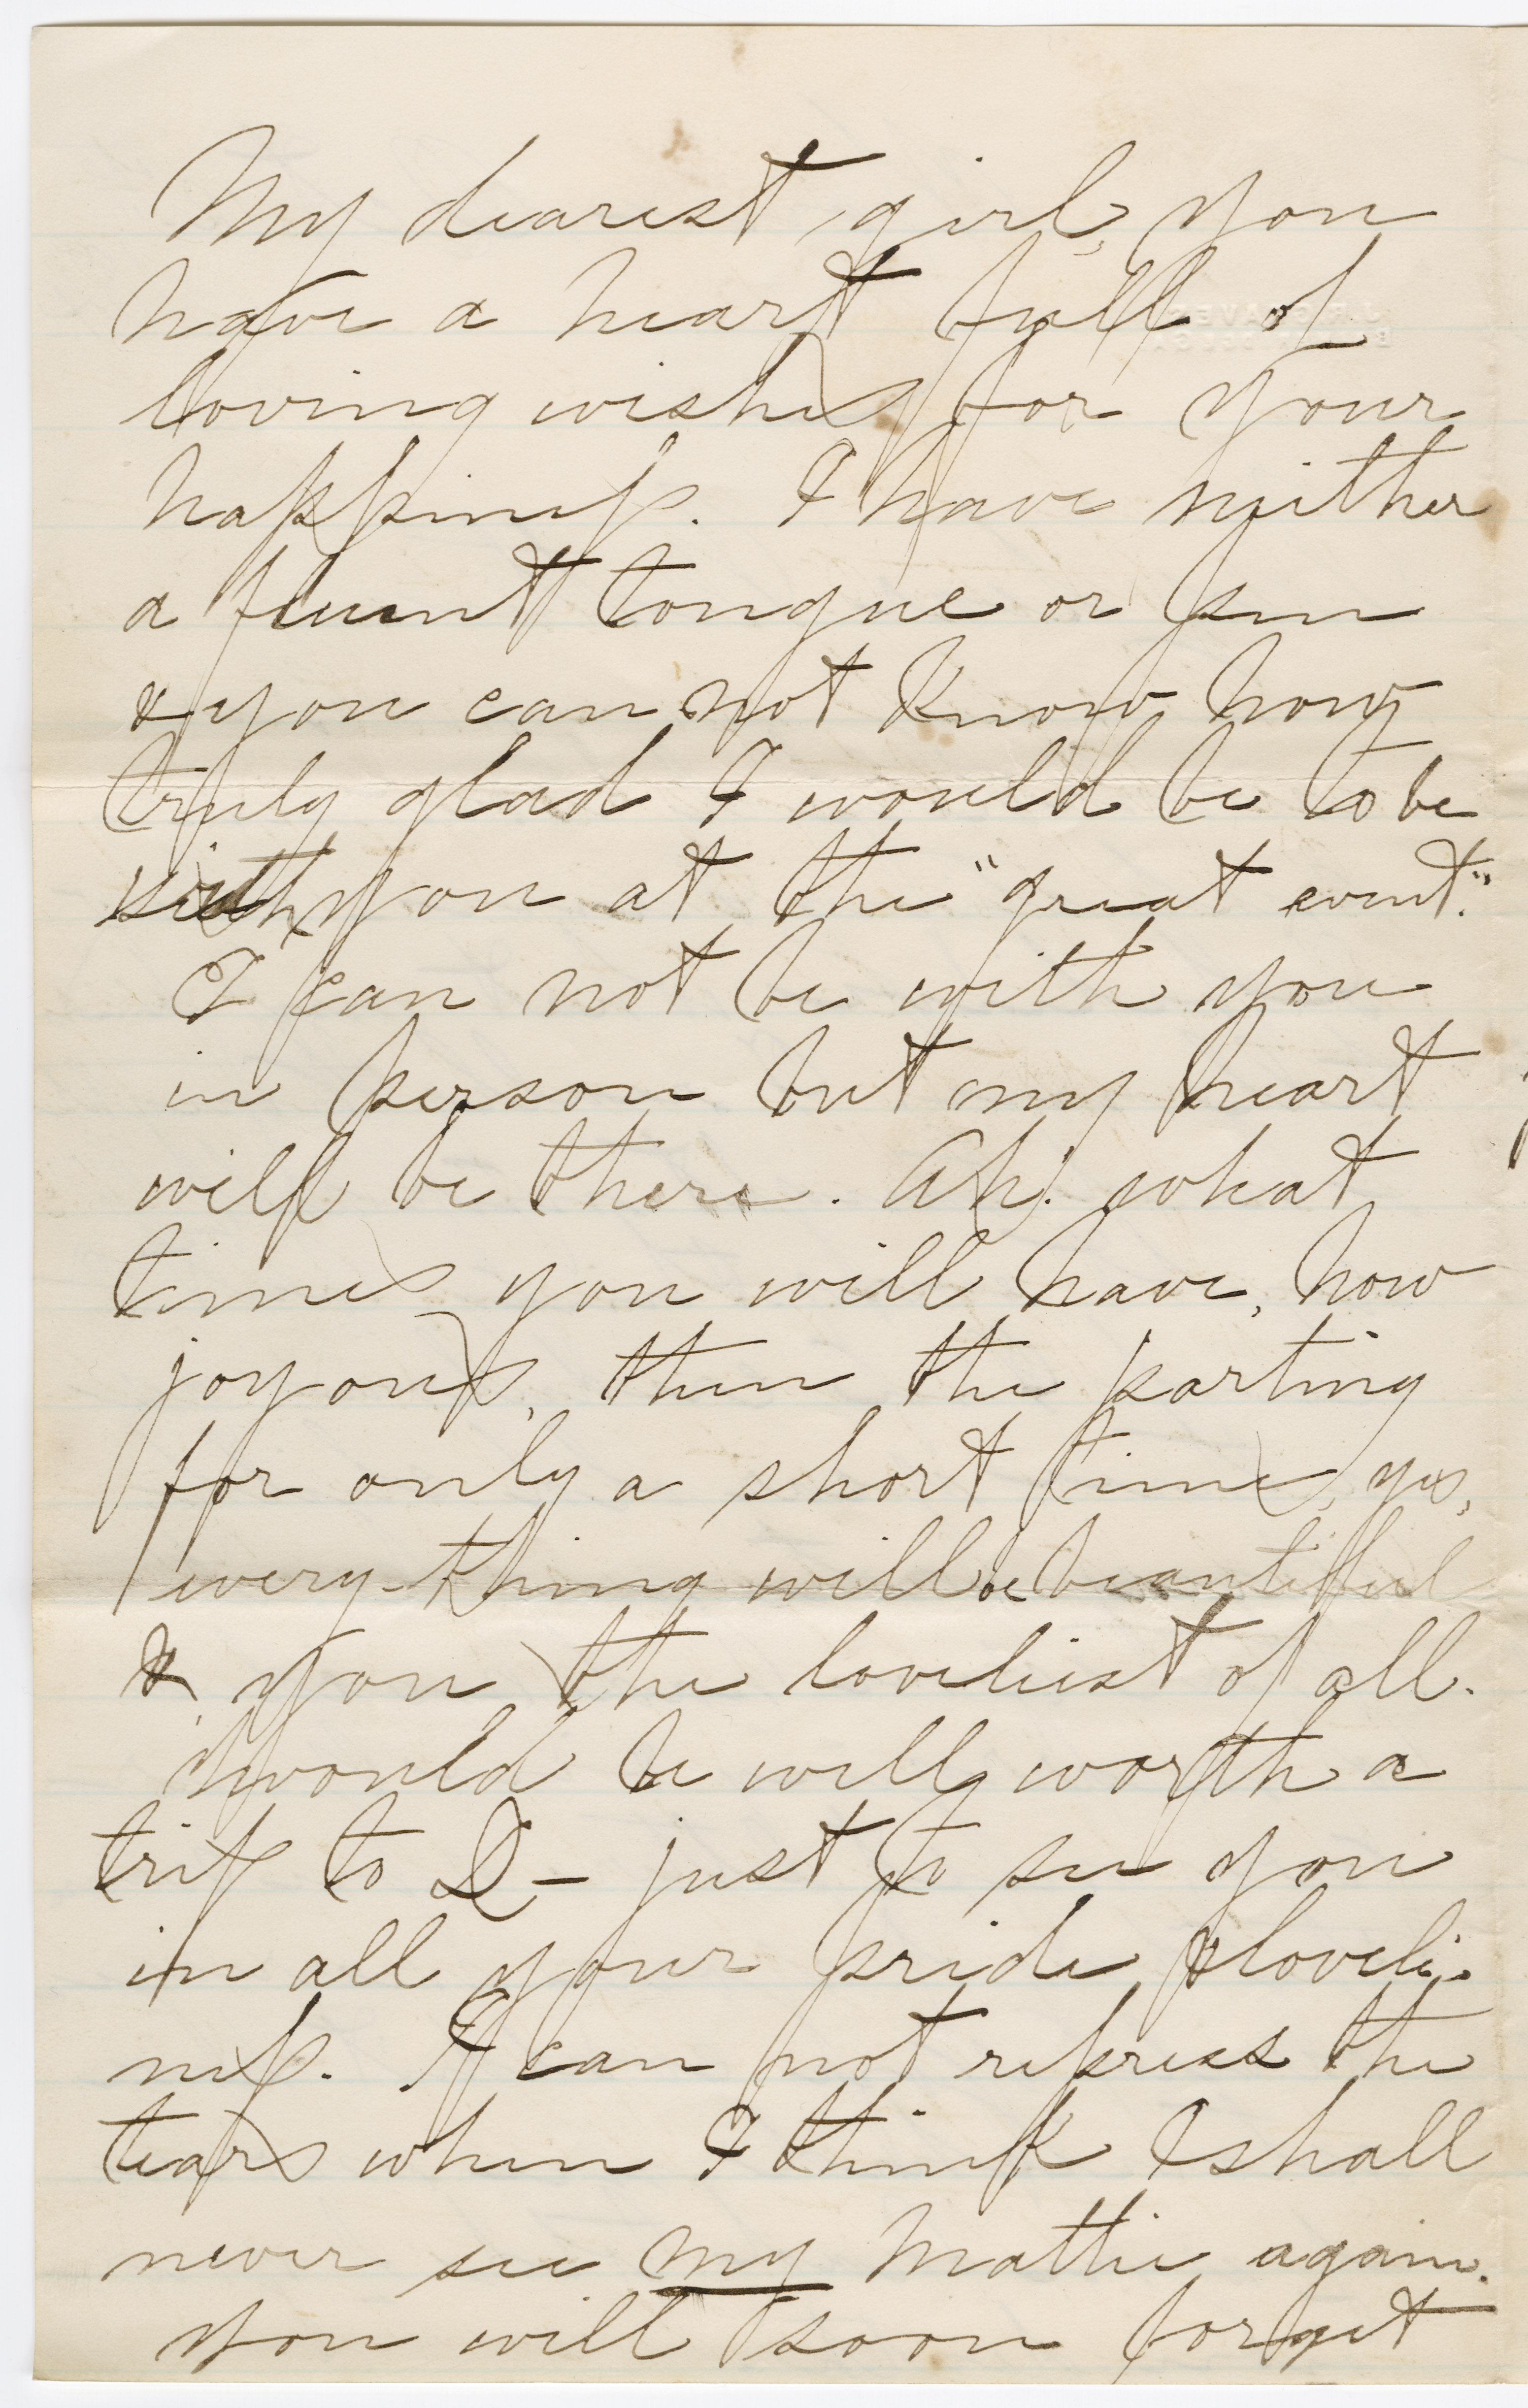 My dearest girl, you
have a heart full of
loving wishes for your
happiness. I have neither
a fluent tongue or pen
& you can not know how
truly glad I would be to be
with you at the "great event."
I can not be with you
in person but my heart
will be there. Ah! what
times you will have, how
joyous, then the parting
for only a short time, yes,
every-thing will be beautiful
& you the loveliest of all.
Would be well worth a
trip to D— just to see you
in all your pride & loveli-
ness. I can not repress the
tears when I think I shall
never see my Mattie again.
You will soon forget